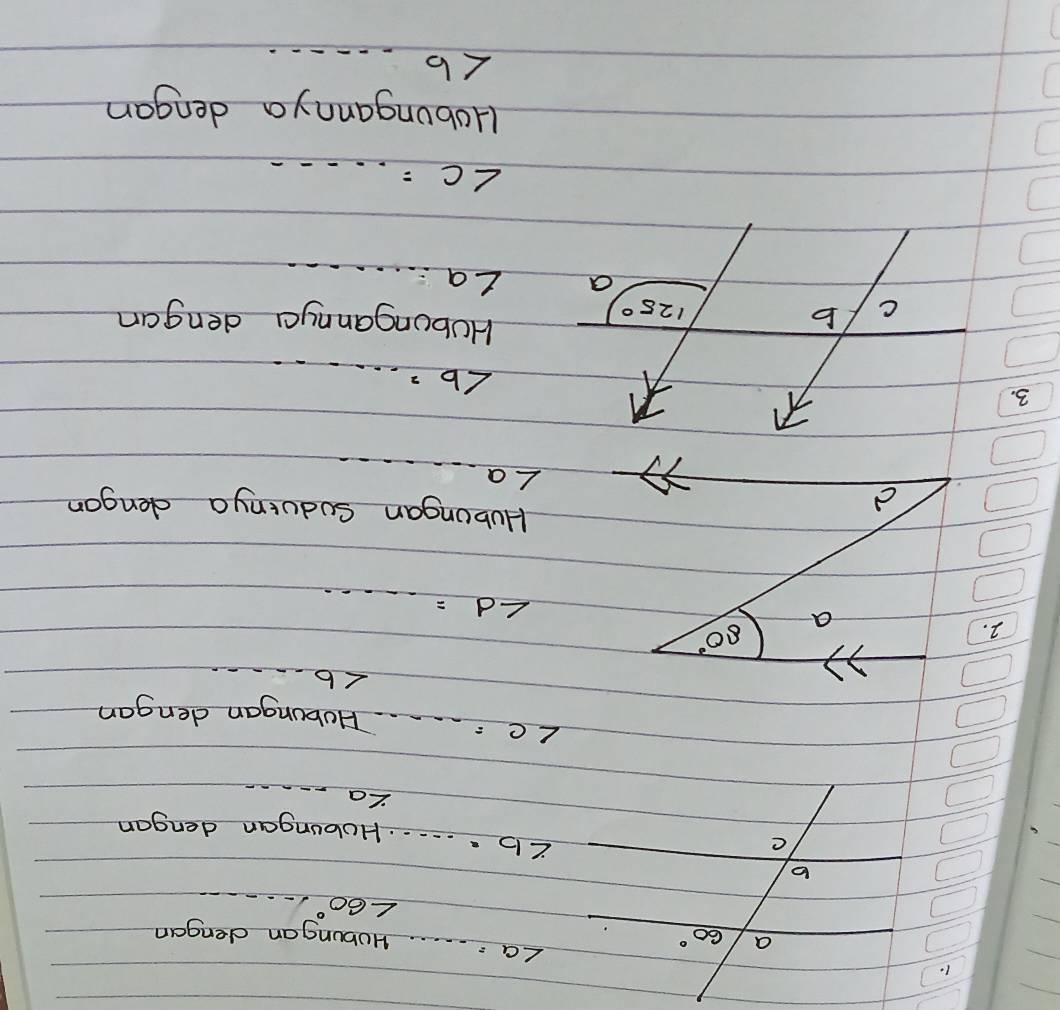 1.
a 60°
∠a = ...... Hubungan dengan
∠60° ........
b
c
∠b = ...... Hubungan dengan
∠a ......
∠c = ...... Hubungan dengan
∠b ......
2.
80°
a
d
∠d = ......
Hubungan sudutnya dengan
∠a ........
3.
∠b = ........
Hubungannya dengan
∠a ........
c b 125° a
∠c = ......
Hubungannya dengan
∠b ......